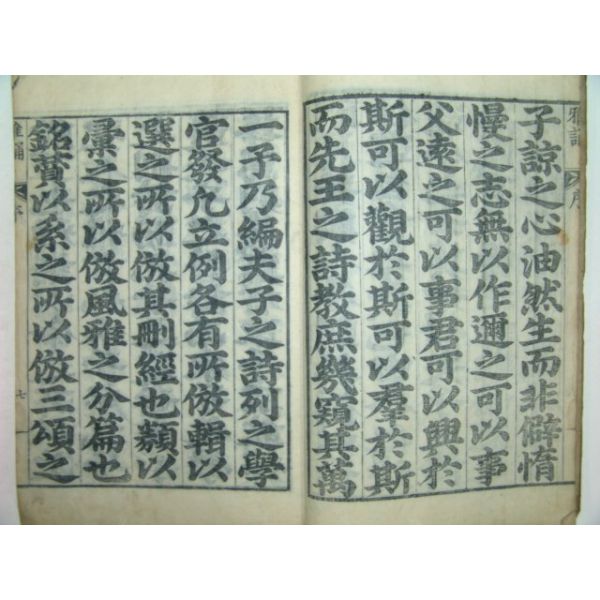 雅誦 序
子諒之心油然生而非僻惰
慢之志無以作邇之可以事
父遠之可以事君可以興於
斯可以觀於斯可以羣於斯
而先王之詩教庶幾窺其萬
一子乃編夫子之詩列之學
官發凡立例各有所倣輯以
選之所以倣其刪經也纇以
彚之所以倣風雅之分篇也
銘贊以系之所以倣三頌之
雅誦 序 七